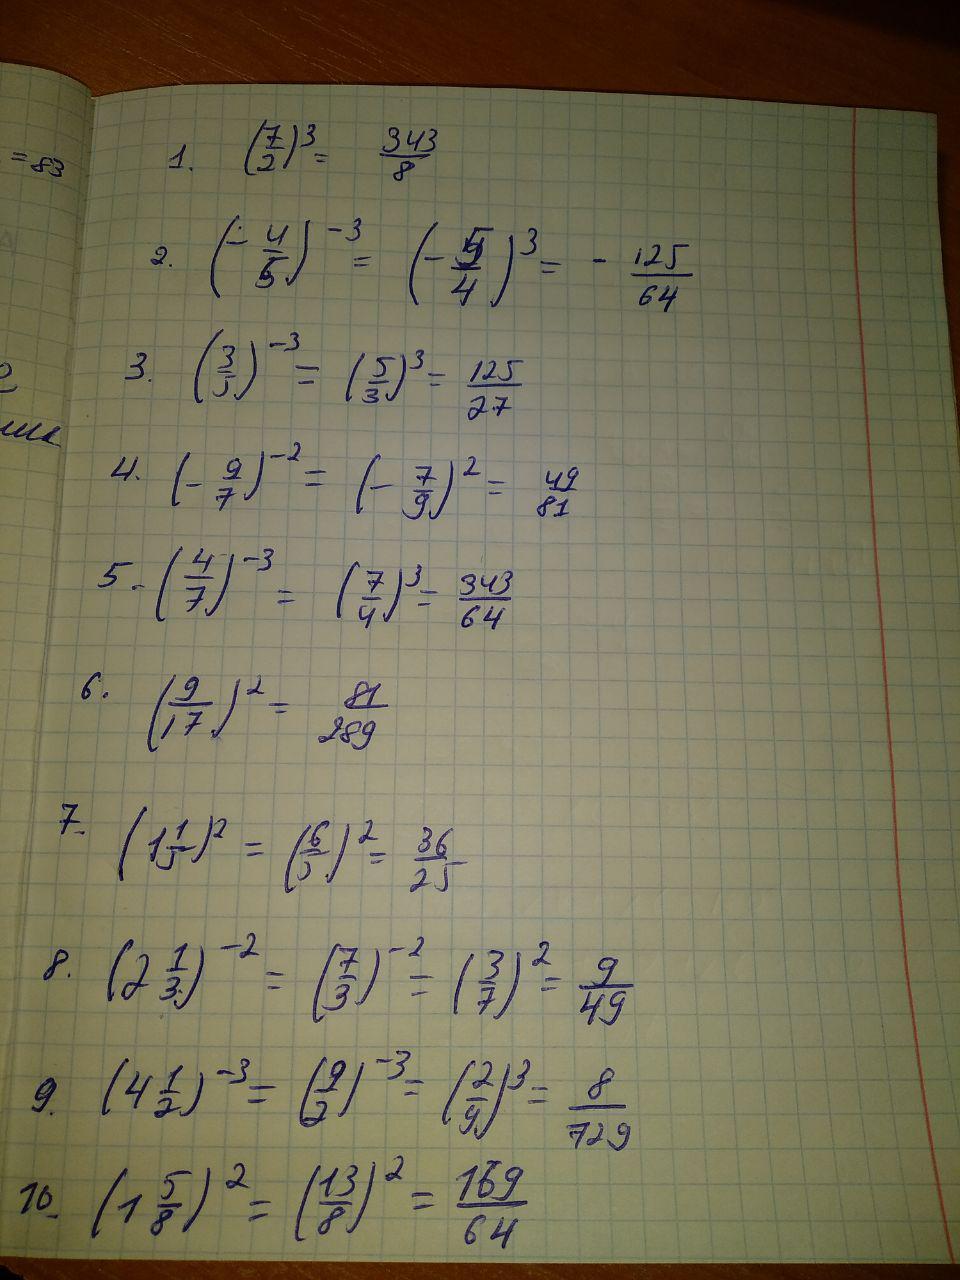 = 83
1. (7/2)^3 = 343/8
2. (- 4/5)^-3 = (- 5/4)^3 = - 125/64
3. (3/5)^-3 = (5/3)^3 = 125/27
4. (- 9/7)^-2 = (- 7/9)^2 = 49/81
5. (4/7)^-3 = (7/4)^3 = 343/64
6. (9/17)^2 = 81/289
7. (1 1/5)^2 = (6/5)^2 = 36/25
8. (2 1/3)^-2 = (7/3)^-2 = (3/7)^2 = 9/49
9. (4 1/2)^-3 = (9/2)^-3 = (2/9)^3 = 8/729
10. (1 5/8)^2 = (13/8)^2 = 169/64